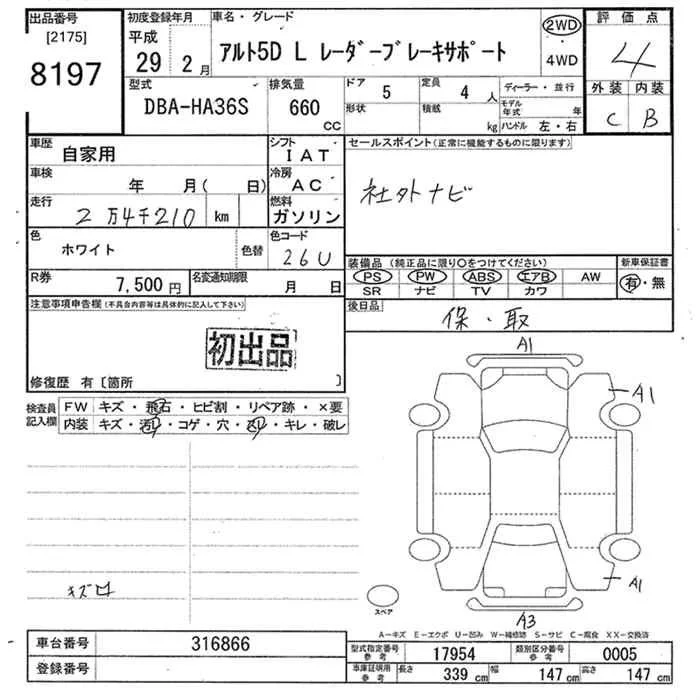 出品番号 初度登録年月 車名・グレード 評価点
[2175]
8197
平成
29 2月
アルト5D L レーダーブレーキサポート
2WD
・
4WD
4
型式 排気量 ドア 定員 ディーラー・並行 外装 内装
DBA-HA36S 660 CC 5 4人
形状 積載 kg モデル年式 年
ハンドル 左・右
C B
車歴 自家用 シフト IAT セールスポイント(正常に機能するものに限ります)
車検 年 月( 日) 冷房 AC
社外ナビ
走行 2万4千210 km 燃料 ガソリン
色 ホワイト 色替 色コード 26U
装備品(純正品に限り○をつけてください) 新車保証書
PS PW ABS エアB AW 有・無
SR ナビ TV カワ
R券 7,500円 名変通知期限 月 日
後日品 保・取
注意事項申告欄(不具合内容等は具体的に記入して下さい)
初出品
修復歴 有〔箇所 〕
検査員記入欄 FW キズ・飛石・ヒビ割・リペア跡・×要
内装 キズ・汚れ・コゲ・穴・スリ・キレ・破レ
A1
A1
キズ
A1
スペア
A3
A-キズ E-エクボ U-凹み W-補修跡 S-サビ C-腐食 XX-交換済
車台番号 316866
登録番号
型式指定番号 参考 17954 類別区分番号 参考 0005
車庫証明用 参考 長さ 339 cm 幅 147 cm 高さ 147 cm